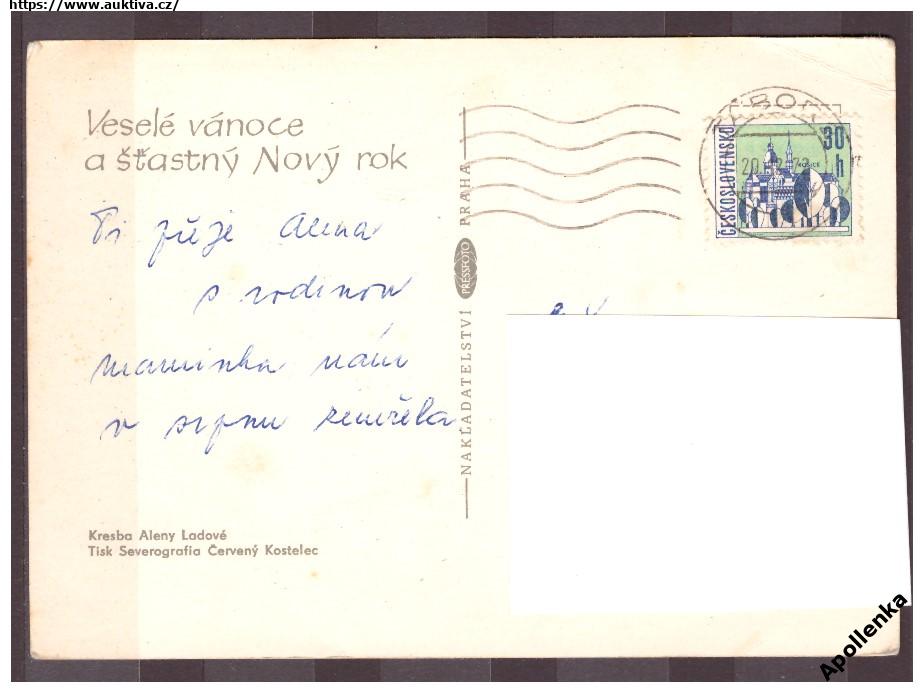 https://www.auktiva.cz/
Veselé vánoce
a šťastný Nový rok
Ti přeje Alena
s rodinou
maminka nám
v srpnu zemřela
Kresba Aleny Ladové
Tisk Severografia Červený Kostelec
NAKLADATELSTVÍ PRESSFOTO PRAHA
ČESKOSLOVENSKO
30 h
KOŠICE
Apollenka